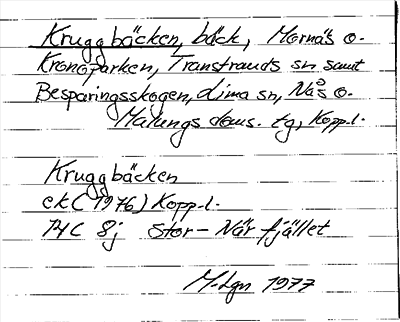 Kruggbäcken, bäck, Mornäs o.
Kronoparken, Transtrands sn samt
Besparingsskogen, Lima sn, Nås o.
Malungs doms. tg, Kopp.l.
Kruggbäcken
ek (1976) Kopp.l.
14C 8j Stor-Närfjället
M-lgn 1977